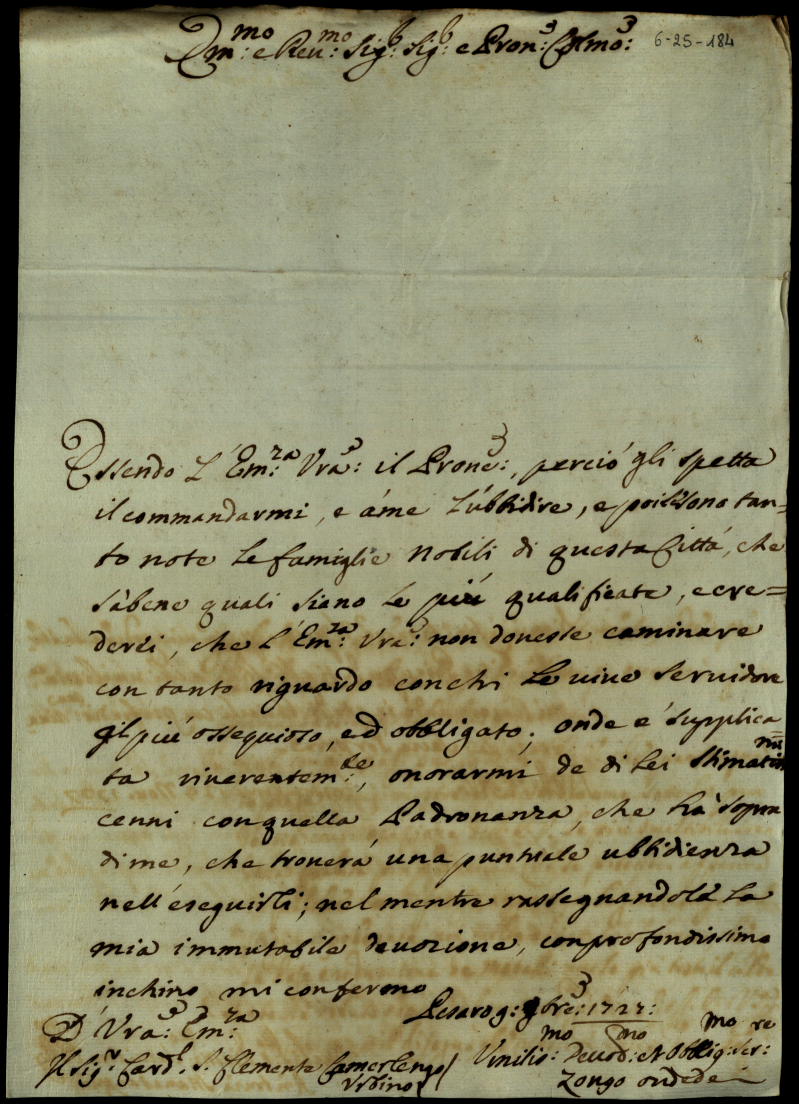 Em:mo e Reu:mo Sig:r Sig:r e Pron:e Colmo:
6-25-184
Essendo L'Em:za Vra: il Prone:, perciò gli spetta
il commandarmi, e à me L'ubbidire, e poi li sono tan=
to note le famiglie Nobili di questa Città, che
sà bene quali siano le più qualificate, e cre=
derei, che L'Em:za Vra: non douesse caminare
con tanto riguardo con chi Le uiue seruidore
il più ossequioso, ed obbligato; onde è supplica=
ta riuerentem:te, onorarmi de di Lei stimatis:mi
cenni con quella Padronanza, che hà sopra
di me, che trouerà una puntuale ubbidienza
nell'eseguirli; nel mentre rassegnandola La
mia immutabile deuozione, con profondissimo
inchino mi confermo
Pesaro 9: 9bre: 1727:
D' Vra: Em:za
Il Sig:r Card:l S. Clemente Camerlengo
Urbino
Vmilis:mo Deuod:mo et Obblig:mo Ser:re
Zongo ondedei